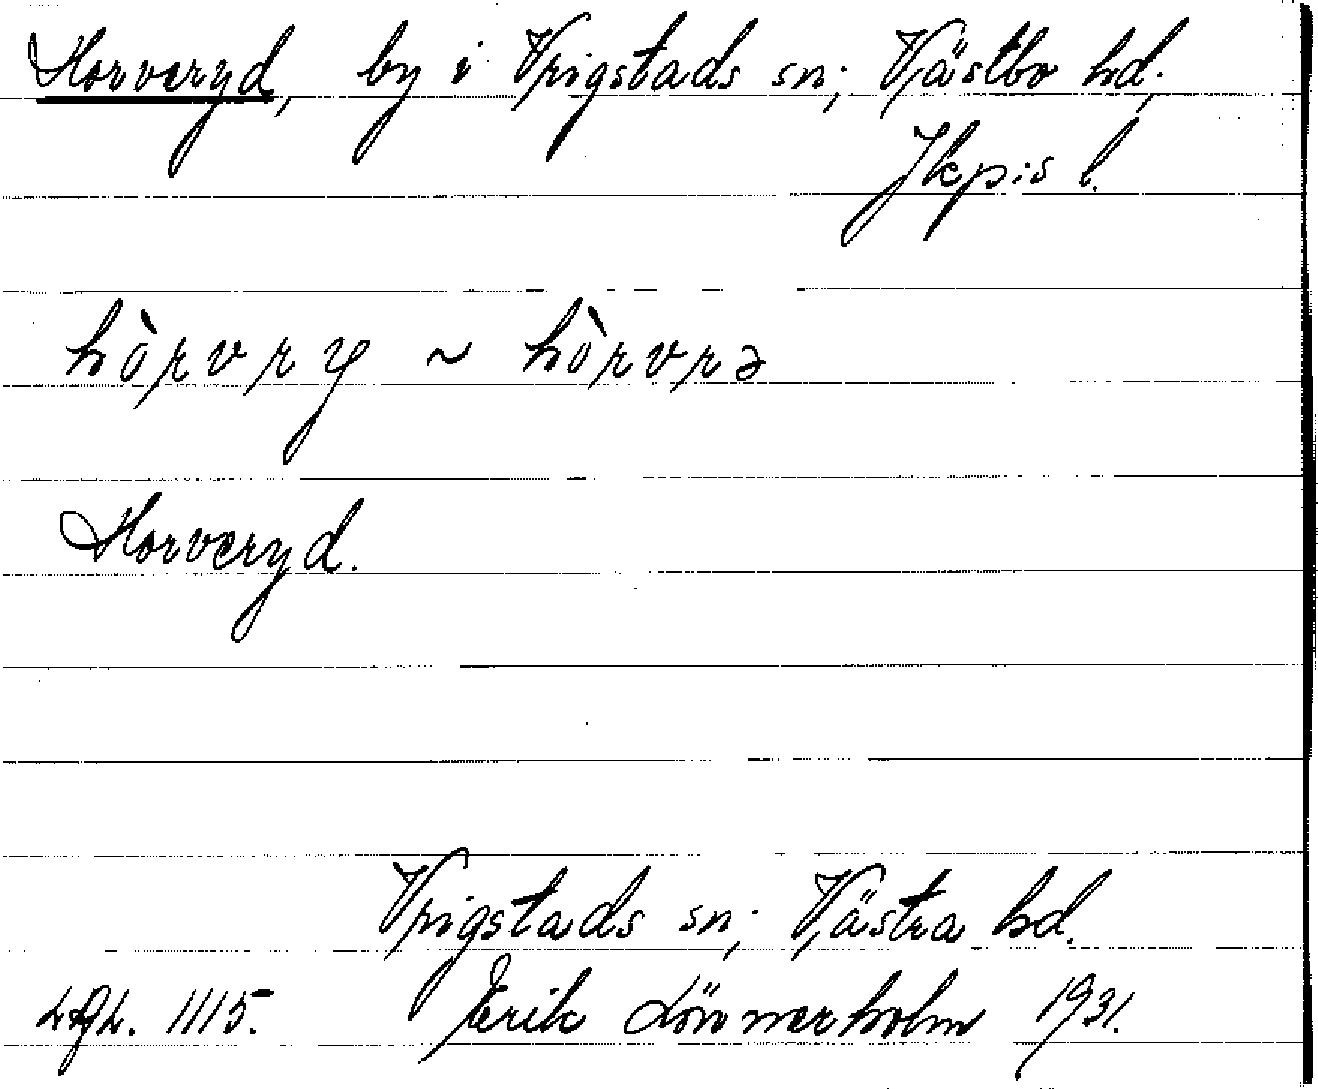 Horveryd, by i Vrigstads sn; Västbo hd,
Jkpis l.
hòrvry ~ hòrvrə
Horveryd.
Vrigstads sn; Västra hd.
1115. Erik Lönnerholm 1931.